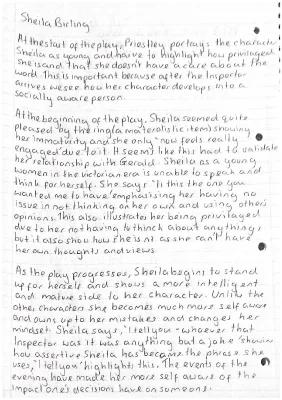 Sheila Birling
At the start of the play, Priestley portrays the character
Sheila as young and naive to highlight how privileged
she is and that she doesn't have a care about the
word. This is important because after the Inspector
arrives we see how her character develops into a
socially aware person.
At the beginning of the play, Sheila seemed quite
pleased by the ring (a materialistic item) showing
her immaturity and she only "now feels really
engaged" due to it. It seems like this had to validate
her relationship with Gerald. Sheila as a young
women in the victorian era is unable to speak and
think for herself. She says "is this the one you
wanted me to have" emphasising her having no
issue in not thinking on her own and using others
opinions. This also illustrates her being privileged
due to her not having to think about anything,
but it also show how she isn't as she can't have
her own thoughts and views.
As the play progresses, Sheila begins to stand
up for herself and shows a more intelligent
and mature side to her character. Unlike the
other characters she becomes much more self aware
and owns up to her mistakes and changes her
mindset. Sheila says, "I tell you - whoever that
Inspector was it was anything but a joke" showing
how assertive Sheila has became the phrase she
uses, "I tell you" highlights this. The events of the
evening have made her more self aware of the
impact one's decisions have on someone.